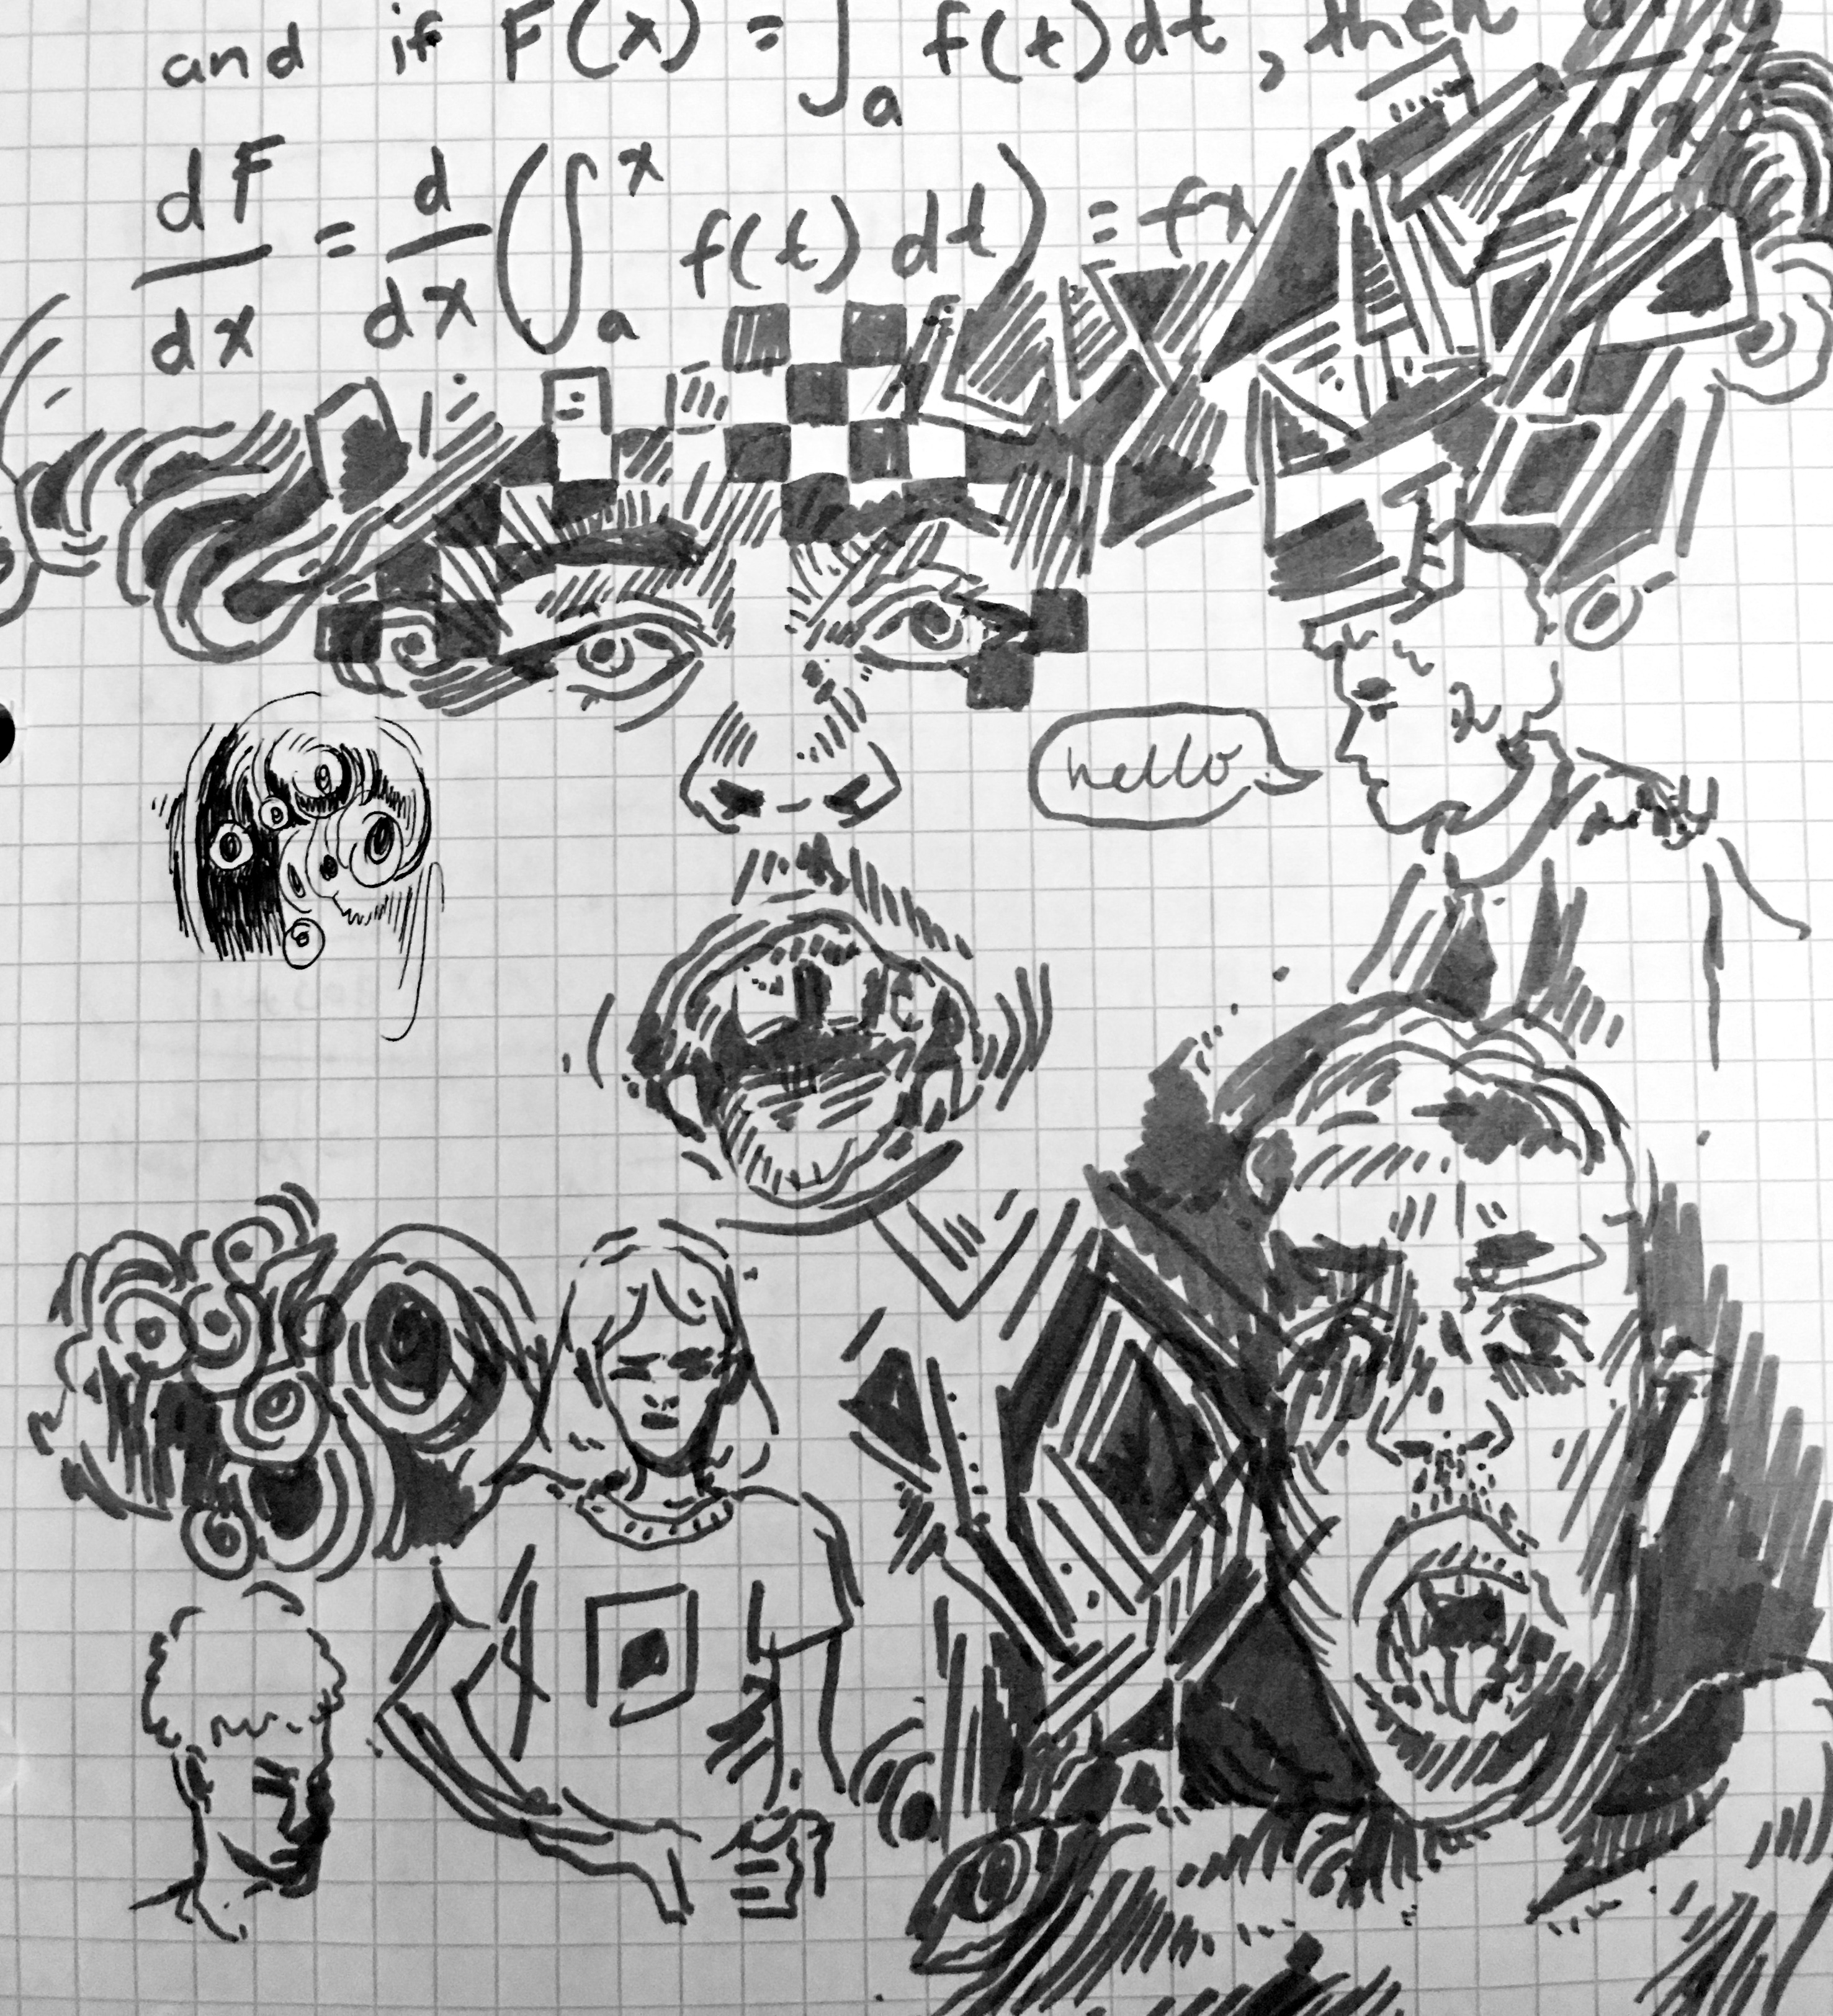 and if F(x) = ∫ₐ f(t)dt, then
dF/dx = d/dx (∫ₐˣ f(t) dt) = fx
hello